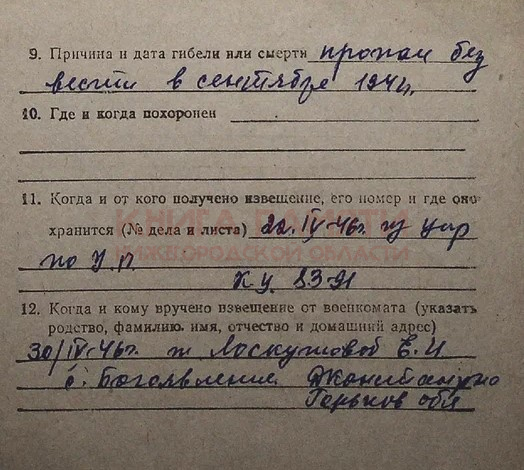 9. Причина и дата гибели или смерти пропал без
вести в сентябре 1941г.
10. Где и когда похоронен
11. Когда и от кого получено извещение, его номер и где оно
хранится (№ дела и листа) 22. IV-46г. из упр
КНИГА ПАМЯТИ
НИЖЕГОРОДСКОЙ ОБЛАСТИ
по У.П.
КУ 8391
12. Когда и кому вручено извещение от военкомата (указать
родство, фамилию, имя, отчество и домашний адрес)
30/IV-46г. ж Лоскутовой Е.И
с. Богоявление
Горьков обл